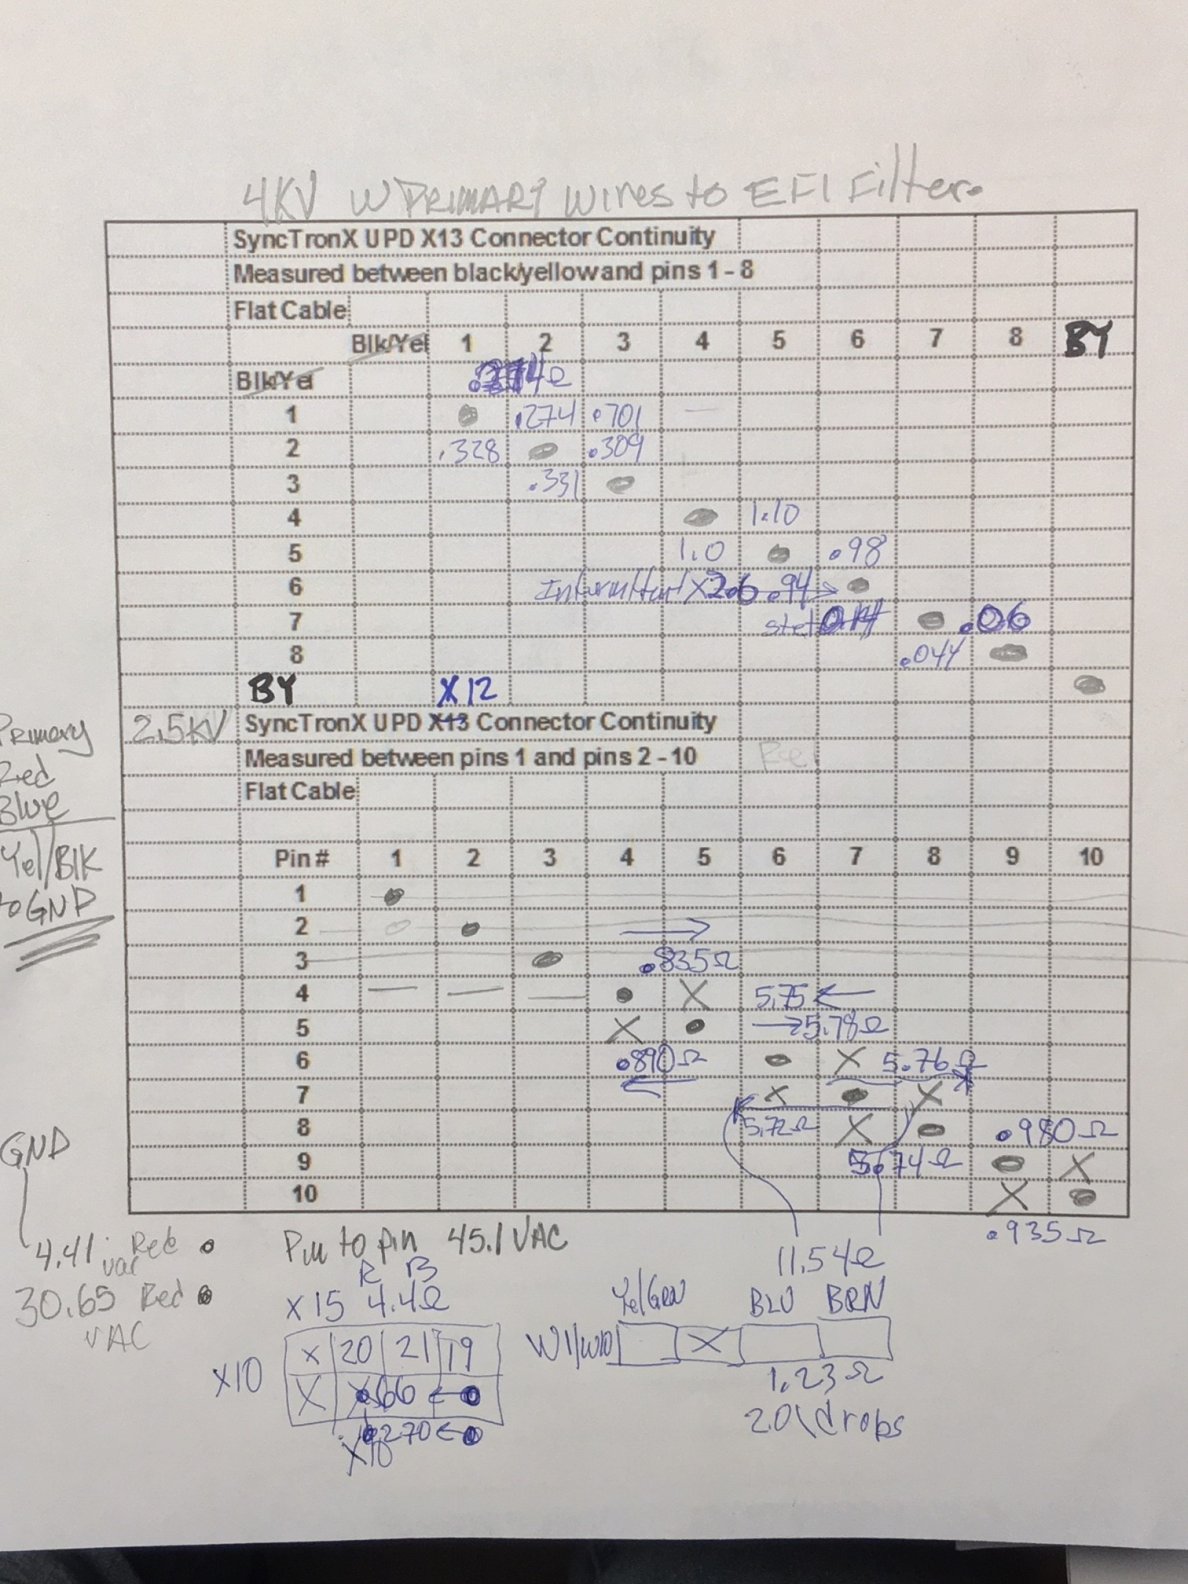 4KV W PRIMARY Wires to EFI Filter.
SyncTronX UPD X13 Connector Continuity
Measured between black/yellow and pins 1 - 8
Flat Cable
Blk/Yel 1 2 3 4 5 6 7 8 BY
Blk/Yel
1 .274 .701 —
2 .328 .309
3 .331
4 1.10
5 1.0 .98
6 X2.6 .94
7 .06
8 .044
BY X12
2.5KV SyncTronX UPD X13 Connector Continuity
Measured between pins 1 and pins 2 - 10
Flat Cable
Primary
Red
Blue
Yel/Blk
to GND
Pin # 1 2 3 4 5 6 7 8 9 10
1
2
3 .835Ω
4 — — — X 5.75
5 X 5.78Ω
6 .890Ω X 5.76Ω
7 X X
8 5.72Ω X .980Ω
9 5.74Ω X
10 X
.935Ω
GND
4.41 vac Red
30.65 Red
VAC
Pin to pin 45.1 VAC
R B
X15 4.4Ω
X10
X 20 21 19
X X66
.270
X10
11.54Ω
Yel/GRN BLU BRN
W1/W10 X
1.23Ω
2.0 drops